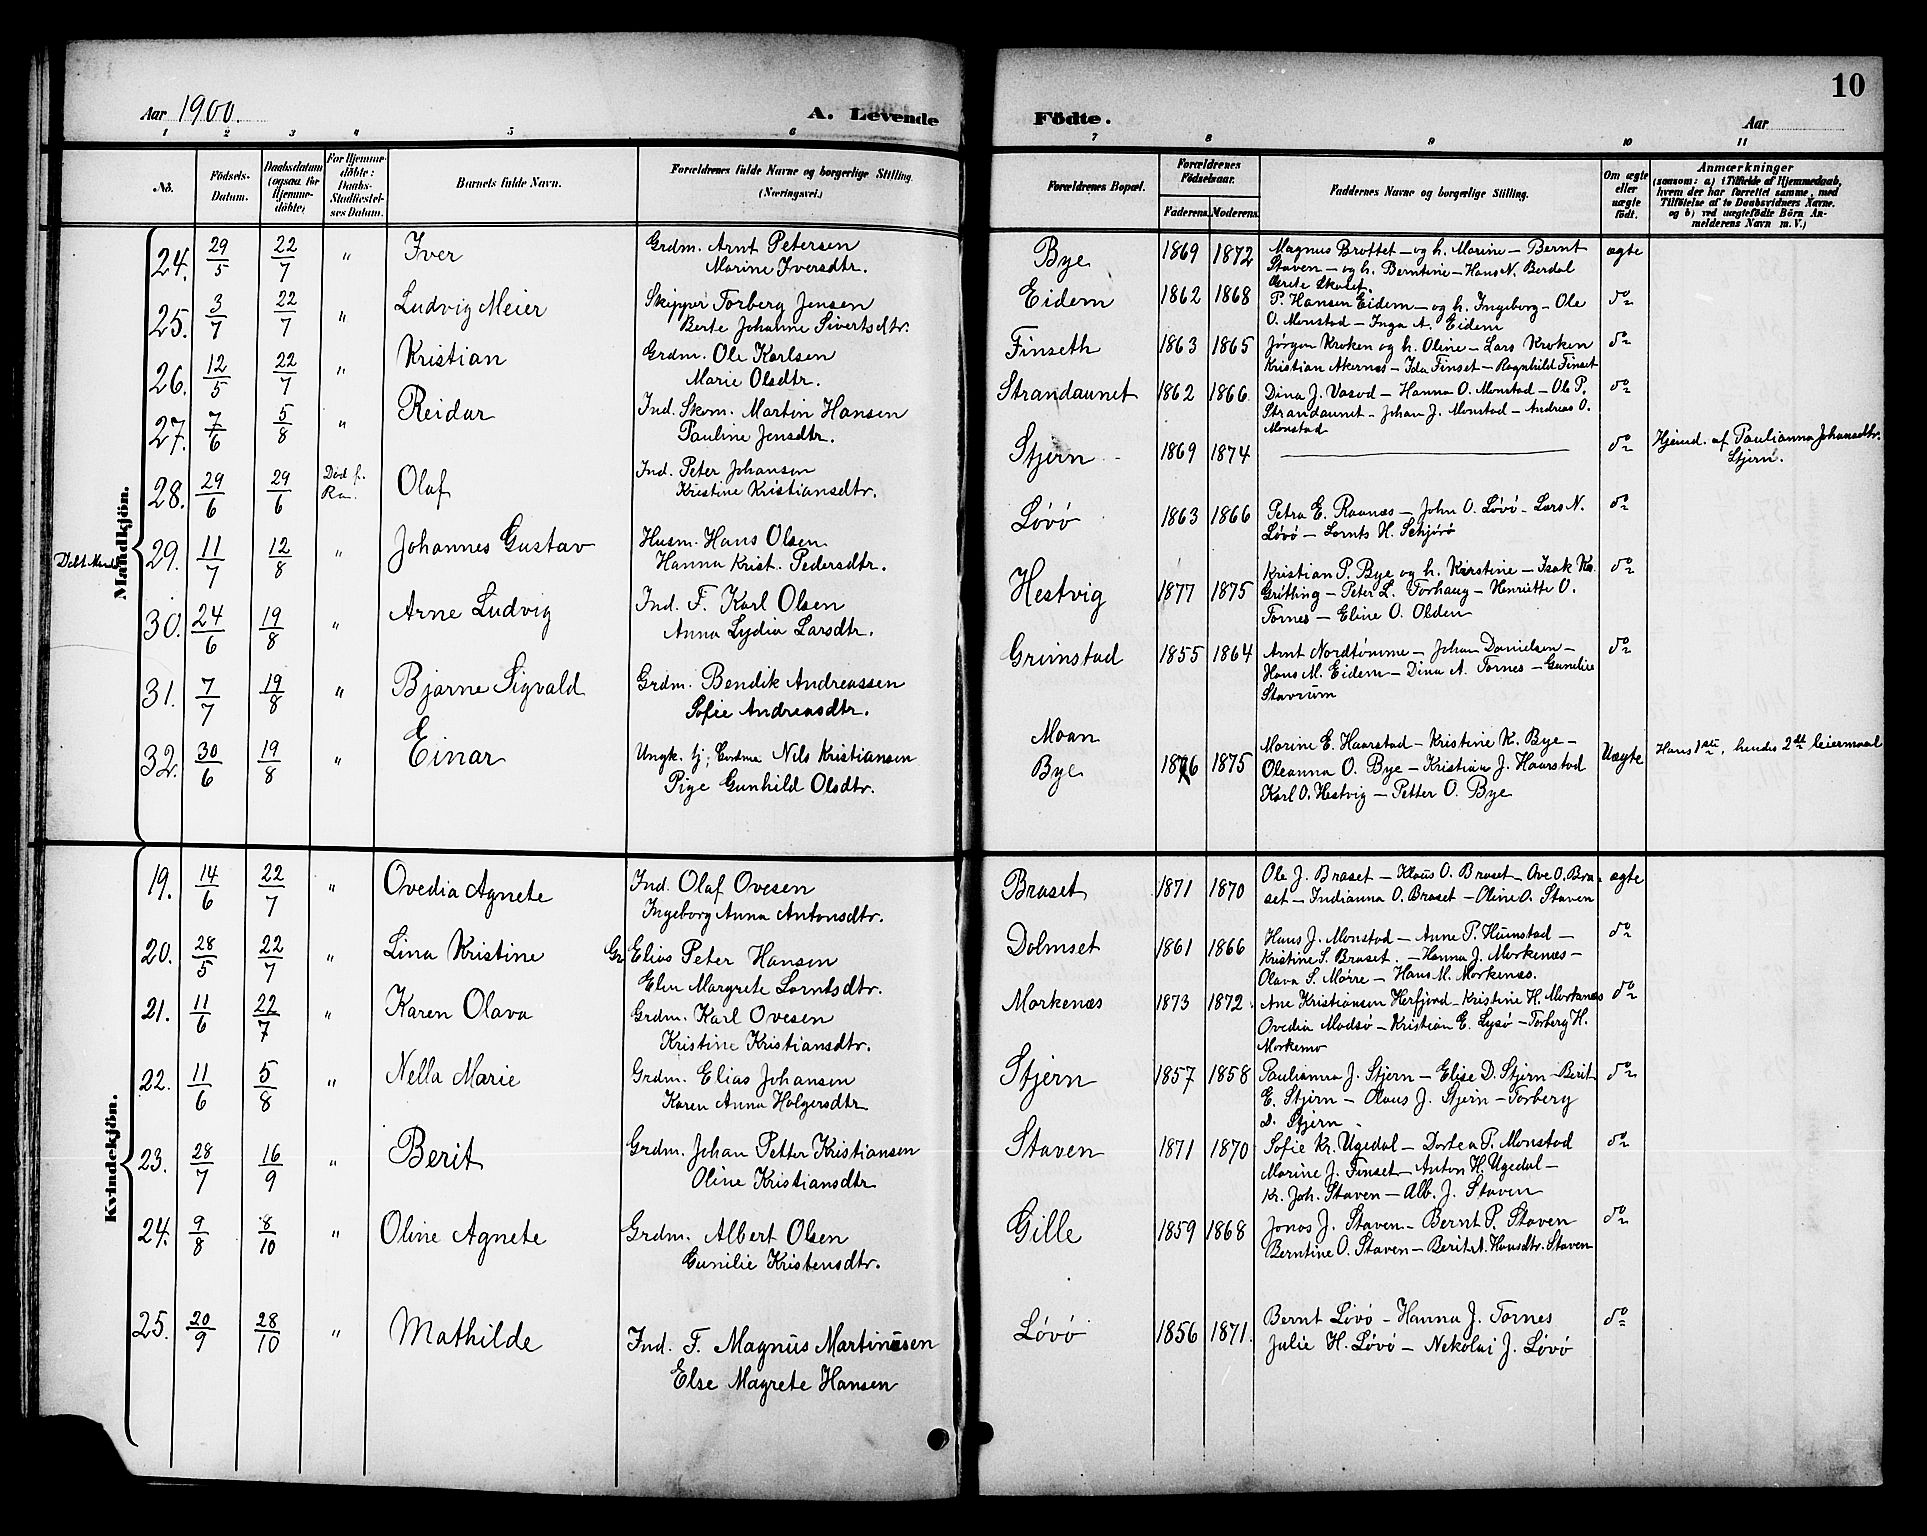 Aar 1900.
A. Levende
Födte.
Aar
10
1 2 3 4 5 6 7 8 9 10 11
No.
Födsels-
Datum.
Daabsdatum
(ogsaa for
Hjemme-
döbte)
For Hjemme-
döbte:
Daabs-
Stadfæstel-
ses Datum.
Barnets fulde Navn.
Forældrenes fulde Navne og borgerlige Stilling
(Næringsvei.)
Forældrenes Bopæl.
Forældrenes
Födselsaar.
Faderens. Moderens.
Faddernes Navne og borgerlige Stilling.
Om ægte
eller
uægte
födt.
Anmærkninger
(saasom: a) i Tilfælde af Hjemmedaab,
hvem der har forrettet samme, med
Tilföielse af to Daabsvidners Navne.
og b) ved uægtefödte Börn An-
melderens Navn m. V.)
Mandkjön.
24. 29/5 22/7 " Iver Grdm. Arnt Petersen
Marine Iversdtr.
Bye 1869 1872 Magnus Brottet – og h. Marine – Bernt
Staven – og h. Berntine – Hans N. Berdal
Grete Skolet.
ægte
25. 3/7 22/7 " Ludvig Meier Skipper Torberg Jensen
Berte Johanne Sivertsdtr.
Eidem 1862 1868 P. Hansen Eidem – og h. Ingeborg – Ole
O. Monstad – Inga A. Eidem
do
26. 12/5 22/7 " Kristian Grdm. Ole Karlsen
Marie Olsdtr.
Finseth 1863 1865 Jørgen Kroken og h. Oline – Lars Kroken
Kristian Akernes – Ida Finset – Ragnhild Finset
do
27. 7/6 5/8 " Reidar Ind. Skom. Martin Hansen
Pauline Jensdtr.
Strandaunet 1862 1866 Dina J. Vasod – Hanna O. Monstad – Ole P.
Strandaunet – Johan J. Monstad – Andreas O.
Monstad
do
28. 29/6 29/6 Död f. Olaf Ind. Peter Johansen
Kristine Kristiansdtr.
Stjern 1869 1874 do Hjemd. af Paulianna Johansdtr.
Stjern.
29. 11/7 12/8 " Johannes Gustav Husm. Hans Olsen
Hanna Krist. Pedersdtr.
Løvö 1863 1866 Petra E. Raanæs – John O. Løvö – Lars N.
Løvö – Lornts H. Schjørö
do
30. 24/6 19/8 " Arne Ludvig Ind. F. Karl Olsen
Anna Lydia Larsdtr.
Hestvig 1877 1875 Kristian P. Bye og h. Karstine – Isak Ka.
Gritting – Peter L. Forhaug – Henritte O.
Tornes – Eline O. Olden
do
31. 7/7 19/8 " Bjarne Sigvald Grdm. Bendik Andreassen
Sofie Andreasdtr.
Grimstad 1855 1864 Arnt Nordtømme – Johan Danielsen –
Hans M. Eidem – Dina A. Tornes – Gunilie
Stavrum
do
32. 30/6 19/8 " Einar Ungk. tj. Nils Kristiansen
Pige Gunhild Olsdtr.
Moan
Bye 1876 1875 Marine E. Haarstad – Kristine K. Bye –
Oleanna O. Bye – Kristian J. Haarstad
Karl O. Hestvig – Petter O. Bye
Uægte Hans 1ste, hendes 2det leiermaal
Kvindekjön.
19. 14/6 22/7 " Ovedia Agnete Ind. Olaf Ovesen
Ingeborg Anna Antonsdtr.
Braset 1871 1870 Ole J. Braset – Klaus O. Braset – Ove O. Bra-
set – Indianna O. Braset – Oline O. Staven
ægte
20. 28/5 22/7 " Lina Kristine Gr. Elias Peter Hansen
Elen Margrete Lorntsdtr.
Dolmset 1861 1866 Hans J. Monstad – Anne P. Humstad –
Kristine S. Braset. – Hanna J. Morkenæs –
Olava S. Mørre – Hans M. Morkenæs.
do
21. 11/6 22/7 " Karen Olava Grdm. Karl Ovesen
Kristine Kristiansdtr.
Morkenæs 1873 1872. Ane Kristiansen Herfjord – Kristine H. Morkenæs
Ovedia Madsø – Kristian E. Lysø – Torberg H.
Morkemo
do
22. 11/6 5/8 " Nella Marie Grdm. Elias Johansen
Karen Anna Holgersdtr
Stjern 1857 1858 Paulianna J. Stjern – Elise D. Stjern – Berit
E. Stjern – Olaus J. Stjern – Torberg
D. Stjern.
do
23. 28/7 16/9 " Berit Grdm. Johan Petter Kristiansen
Oline Kristiansdtr
Staven 1871 1870 Sofie Kr. Ugedal – Dortea P. Monstad
Marine J. Finset – Anton H. Ugedal –
Kr. Joh. Staven – Alb. J. Staven
do
24. 9/8 8/10 " Oline Agnete Grdm. Albert Olsen
Gunilie Kristensdtr.
Gille 1859 1868 Jonas J. Staven – Bernt P. Staven
Berntine O. Staven – Berit A. Hansdtr. Staven
do
25. 20/9 28/10 " Mathilde Ind. F. Magnus Martinusen
Else Magrete Hansen
Løvö 1856 1871. Bernt Løvö – Hanna J. Tornes
Julie H. Løvö – Nekolai J. Løvö
do